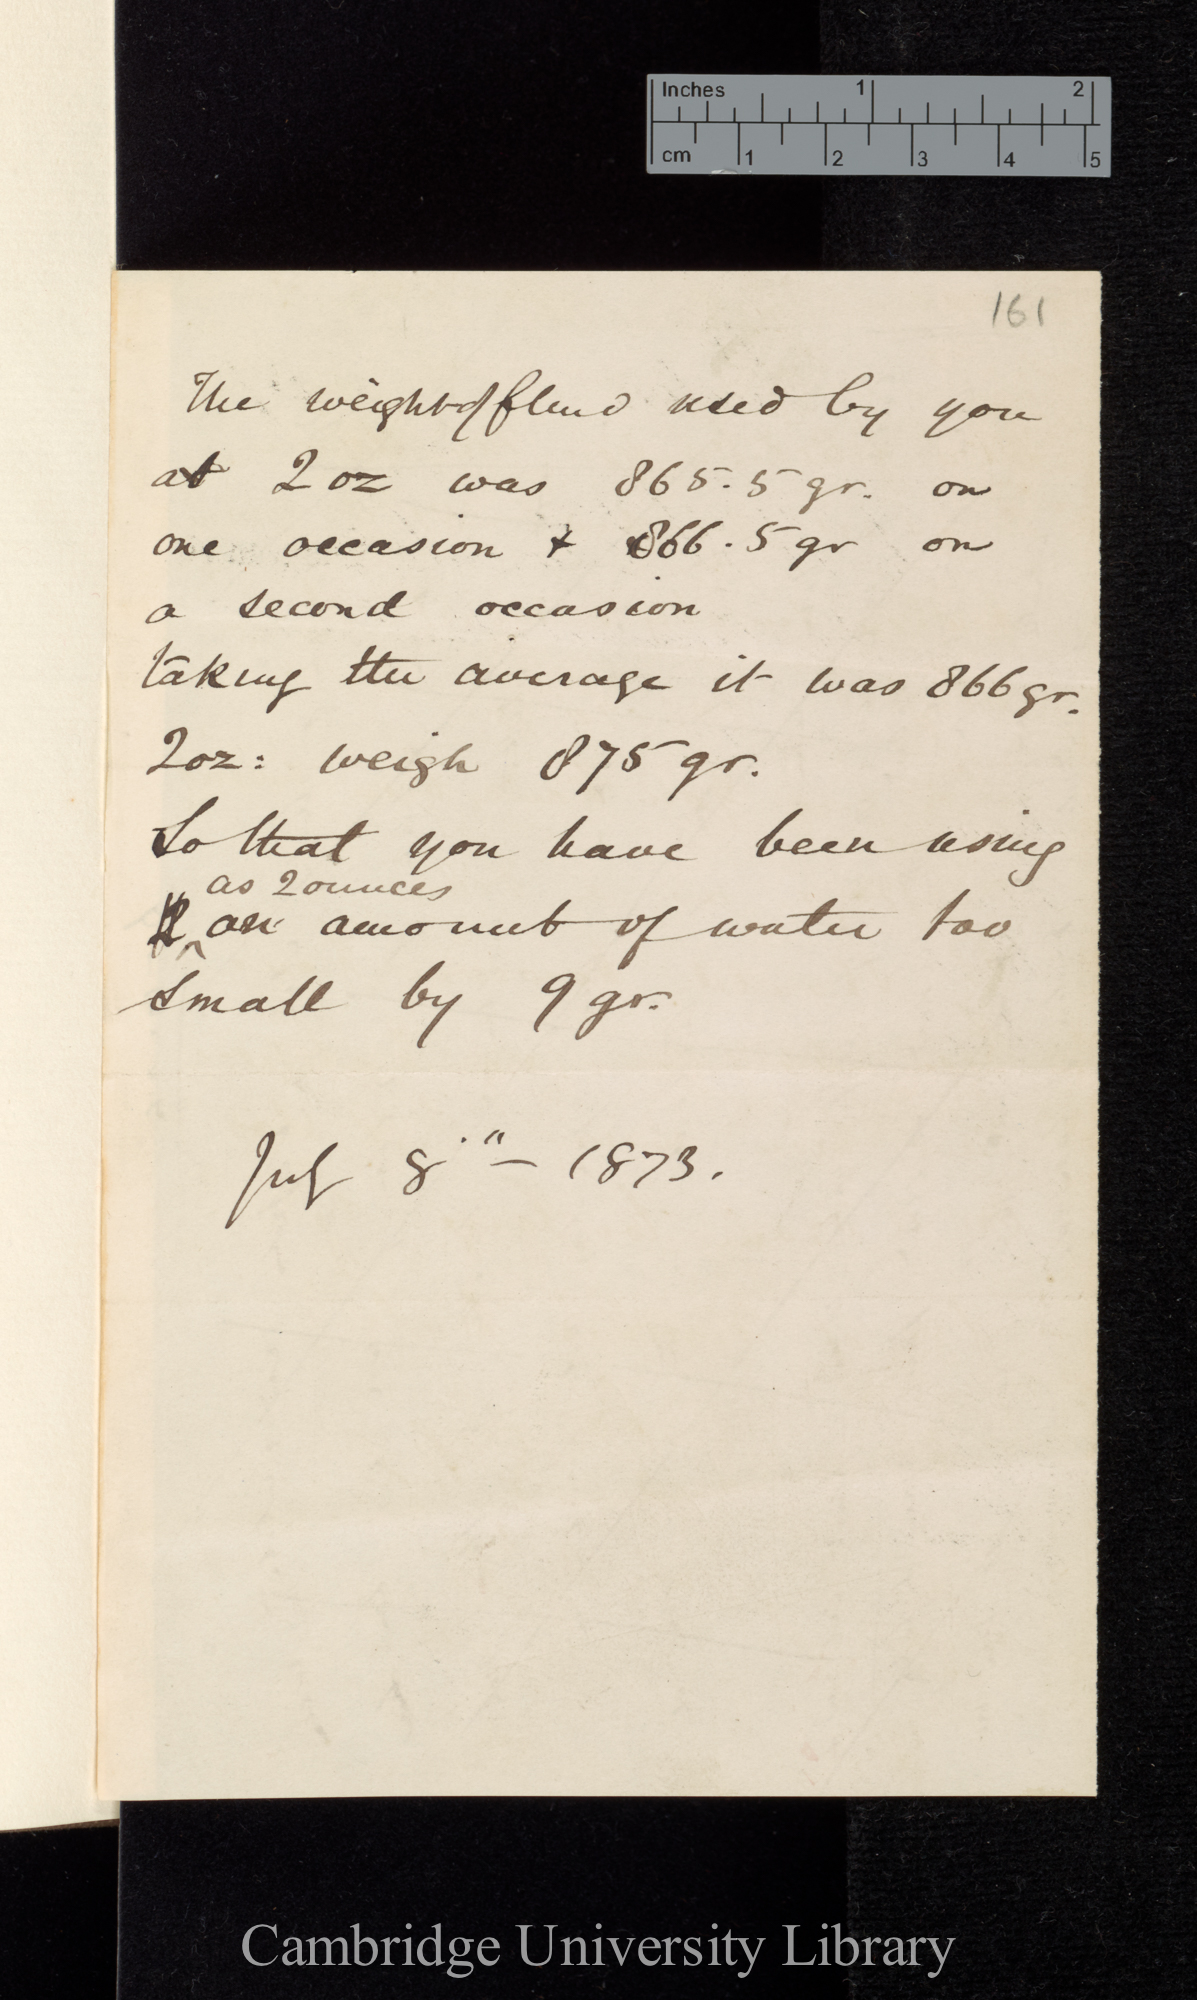 Inches 1 2
cm 1 2 3 4 5
161
The weight of fluid used by you
at 2 oz was 865.5 gr. on
one occasion & 866.5 gr on
a second occasion
taking the average it was 866 gr.
2oz: weigh 875 gr.
So that you have been using
as 2 ounces
an amount of water too
small by 9 gr.
July 8" — 1873.
Cambridge University Library